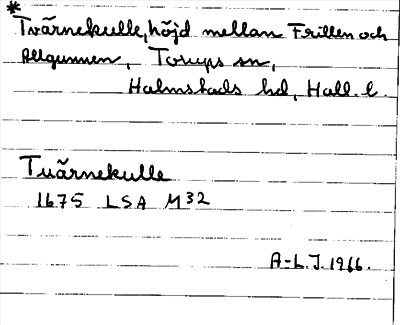 * Tvärnekulle, höjd mellan Frillen och
Allgunnen, Torups sn,
Halmstads hd, Hall. l.
Tuärnekulle
1675 LSA M32
A-L.J. 1966.